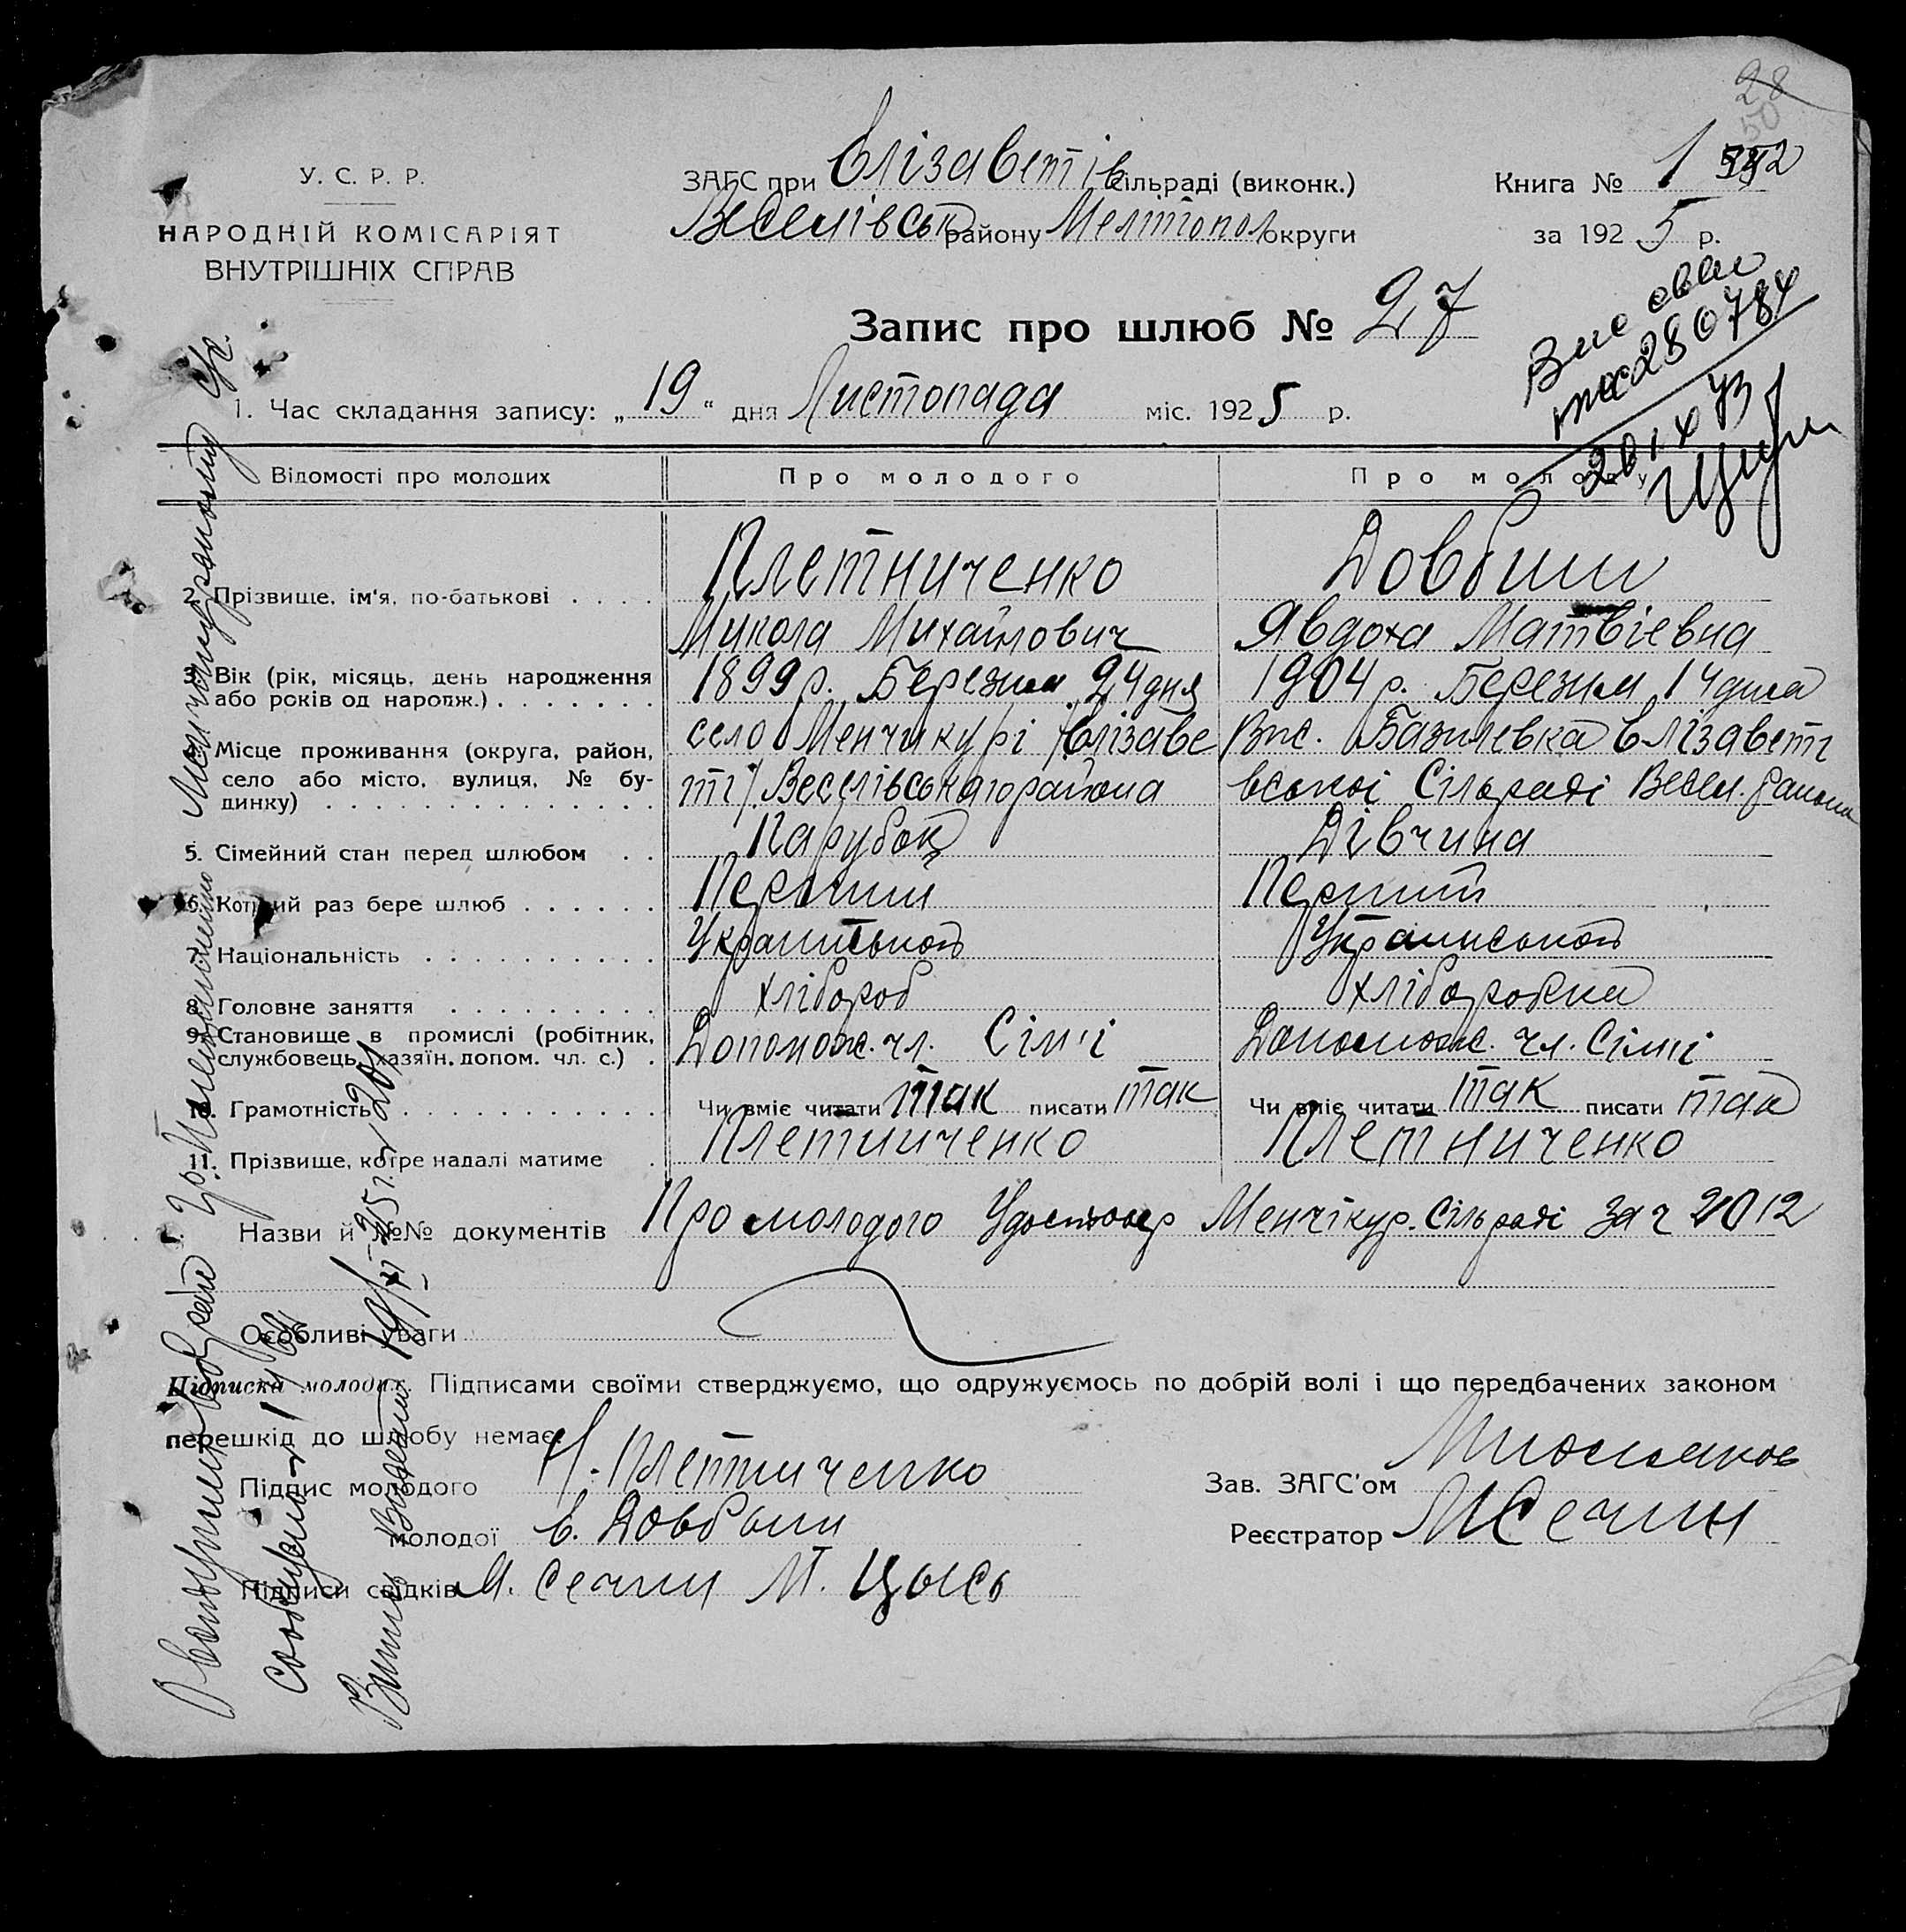 28
50
У. С. Р. Р.
НАРОДНІЙ КОМІСАРІЯТ
ВНУТРІШНІХ СПРАВ
ЗАГС при Єлізаветів сільраді (виконк.)
Веселівськ району Мелітопол округи
Книга № 1
за 1925 р.
Запис про шлюб № 27
1. Час складання запису: „19“ дня Листопада міс. 1925 р.
Відомості про молодих Про молодого Про молоду
2. Прізвище, ім'я, по-батькові . . . . Плетниченко Довбиш
Микола Михайлович Явдоха Матвіевна
3. Вік (рік, місяць, день народження 1899 р. Березня 24 дня 1904 р. Березня 1 дня
або років од народж.) . . . . . . .
4. Місце проживання (округа, район, село Менчикурі /Єлізаве Вис. Базилевка Єлізаветі
село або місто, вулиця, № бу- ті/. Веселівськаго района вської Сільраді Весел. района
динку) . . . . . . . . . . . . . .
5. Сімейний стан перед шлюбом . . Парубок Дівчина
6. Котрий раз бере шлюб . . . . . . Перший Перший
7. Національність . . . . . . . . . . Українськой Українськой
8. Головне заняття . . . . . . . . . хлібороб хліборобка
9. Становище в промислі (робітник, Допомож. чл. Сім'ї Допомож. чл. Сім'ї
службовець, хазяїн, допом. чл. с.) .
10. Грамотність . . . . . . . . . . . Чи вміє читати так писати так Чи вміє читати так писати так
11. Прізвище, котре надалі матиме . Плетниченко Плетниченко
Назви й №№ документів Про молодого Удостовер Менчікур. Сільраді За ч 2012
Особливі уваги
Підписка молодих. Підписами своїми стверджуємо, що одружуємось по добрій волі і що передбачених законом
перешкід до шлюбу немає.
Підпис молодого Н. Плетниченко
Зав. ЗАГС'ом
молодої Є. Довбыш
Реєстратор М Сечин
Підписи свідків М. Сечин М. Цысь